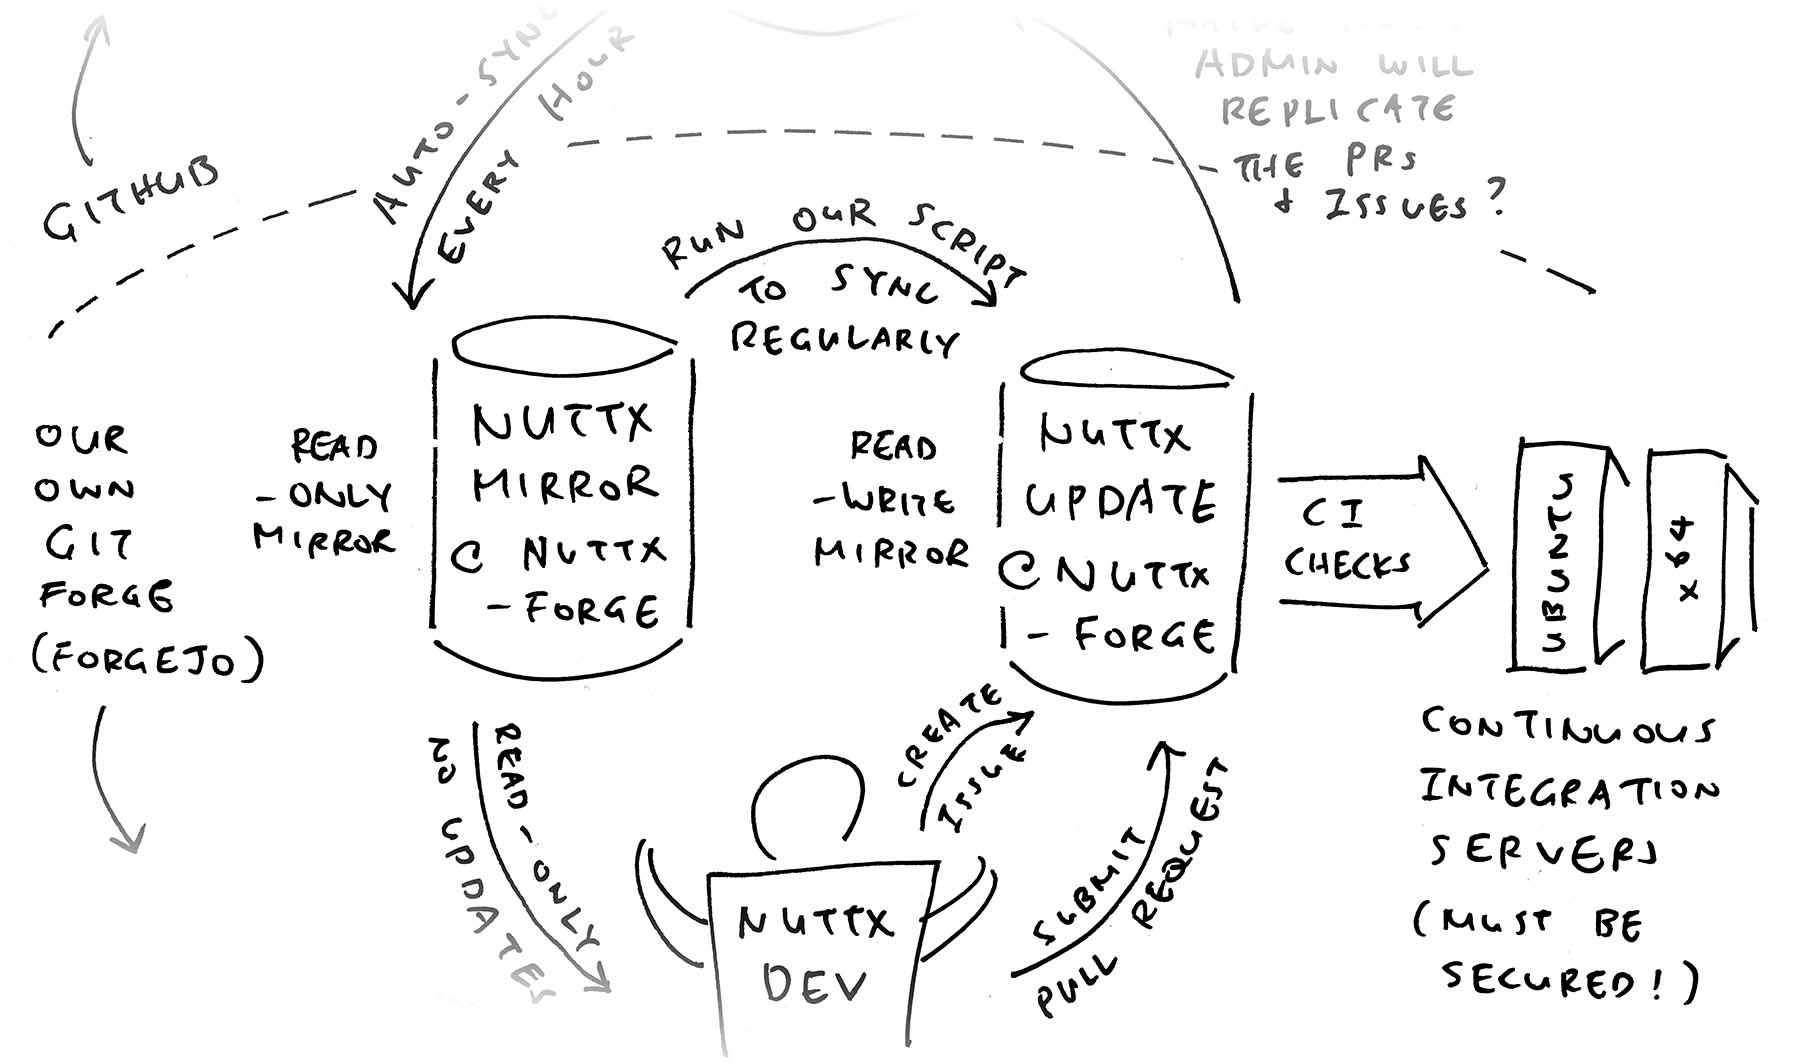 AUTO-SYNC
EVERY HOUR
ADMIN WILL
REPLICATE
THE PRs
& ISSUES?
GITHUB
RUN OUR SCRIPT
TO SYNC
REGULARLY
OUR
OWN
GIT
FORGE
(FORGEJO)
READ
-ONLY
MIRROR
NUTTX
MIRROR
@ NUTTX
-FORGE
READ
-WRITE
MIRROR
NUTTX
UPDATE
@ NUTTX
- FORGE
CI
CHECKS
SUNZTUBS
x64
CONTINUOUS
INTEGRATION
SERVERS
(MUST BE
SECURED!)
READ-ONLY
NO UPDATES
CREATE
ISSUE
SUBMIT
PULL REQUEST
NUTTX
DEV